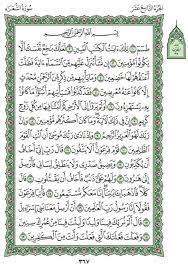 الجزء التاسع عشر
سورة الشعراء
بسم الله الرحمن الرحيم
طسم ١ تلك ءايت الكتب المبين ٢ لعلك بخع نفسك ألا
يكونوا مؤمنين ٣ إن نشأ ننزل عليهم من السماء ءاية فظلت
أعنقهم لها خضعين ٤ وما يأتيهم من ذكر من الرحمن
محدث إلا كانوا عنه معرضين ٥ فقد كذبوا فسيأتيهم أنبؤا
ما كانوا به يستهزءون ٦ أولم يروا إلى الأرض كم أنبتنا فيها
من كل زوج كريم ٧ إن في ذلك لأية وما كان أكثرهم مؤمنين
٨ وإن ربك لهو العزيز الرحيم ٩ وإذ نادى ربك موسى أن ائت
القوم الظلمين ١٠ قوم فرعون ألا يتقون ١١ قال رب إني أخاف
أن يكذبون ١٢ ويضيق صدري ولا ينطلق لساني فأرسل إلى
هرون ١٣ ولهم علي ذنب فأخاف أن يقتلون ١٤ قال كلا
فاذهبا بءايتنا إنا معكم مستمعون ١٥ فأتيا فرعون فقولا
إنا رسول رب العلمين ١٦ أن أرسل معنا بني إسرءيل ١٧
قال ألم نربك فينا وليدا ولبثت فينا من عمرك سنين ١٨
وفعلت فعلتك التي فعلت وأنت من الكفرين ١٩
٣٦٧